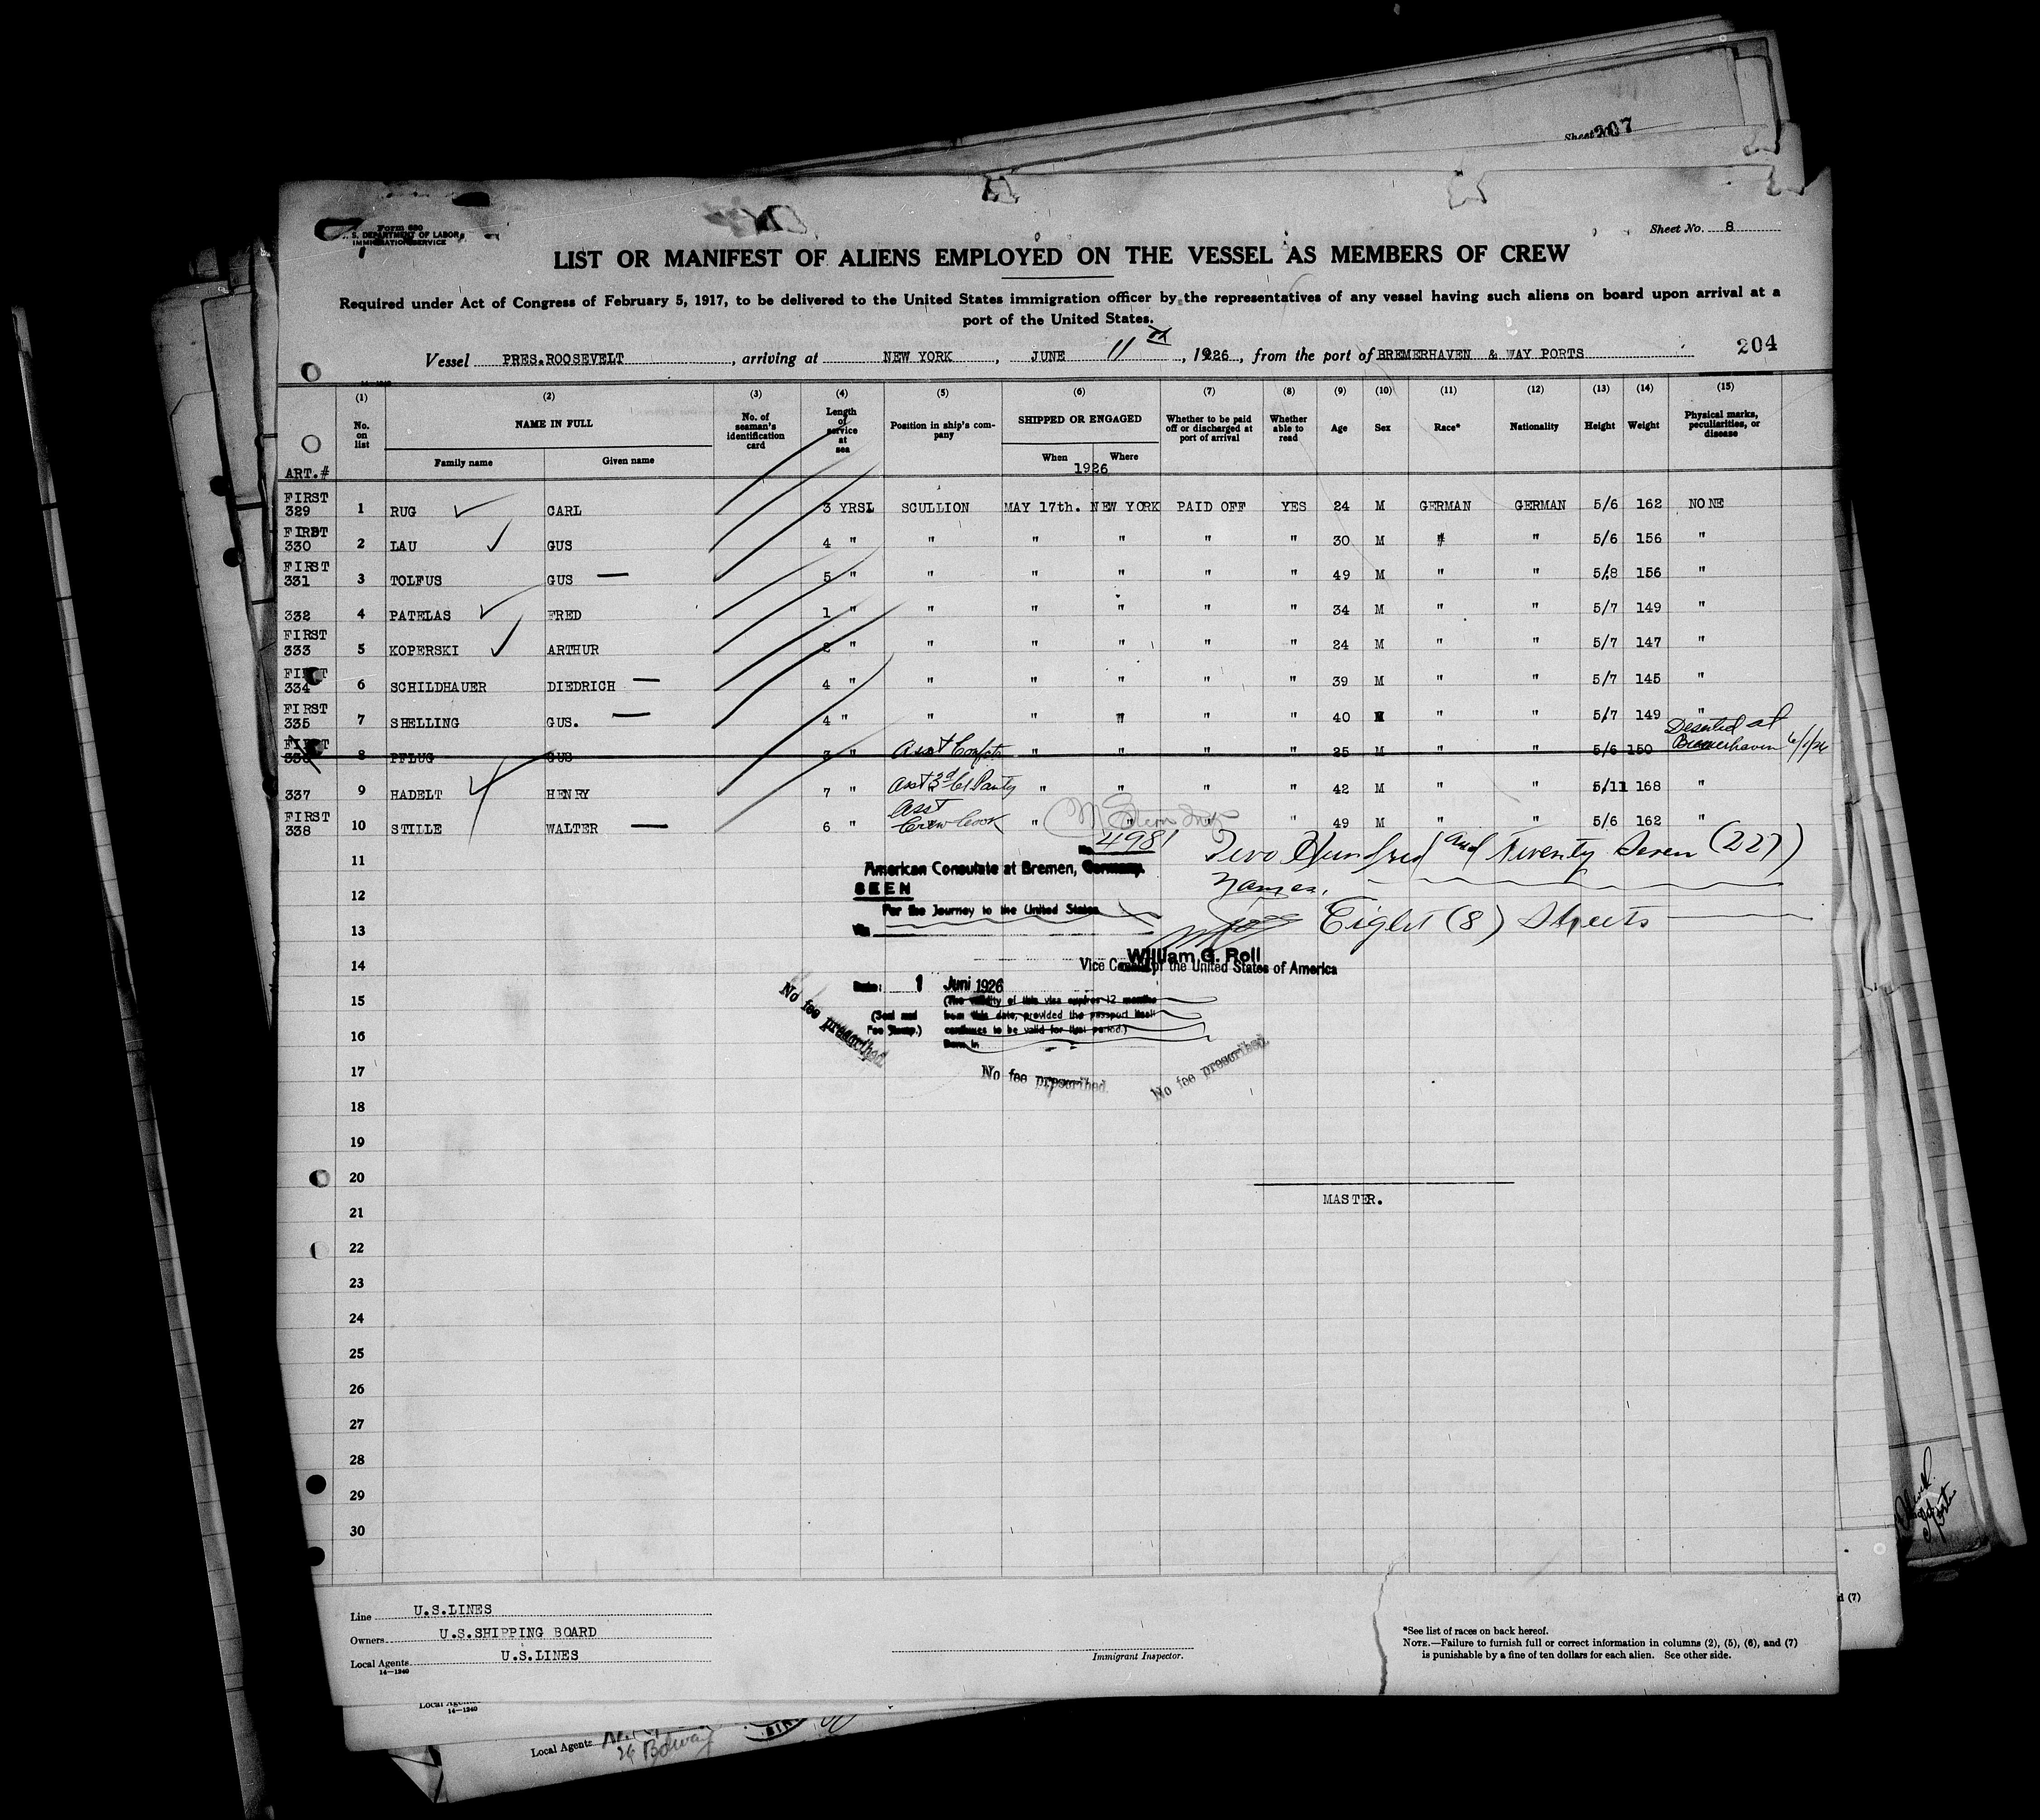 Sheet 207
Form 680
S. DEPARTMENT OF LABOR
IMMIGRATION SERVICE
Sheet No. 8
LIST OR MANIFEST OF ALIENS EMPLOYED ON THE VESSEL AS MEMBERS OF CREW
Required under Act of Congress of February 5, 1917, to be delivered to the United States immigration officer by the representatives of any vessel having such aliens on board upon arrival at a
port of the United States.
Vessel PRES.ROOSEVELT, arriving at NEW YORK, JUNE 11th, 1926, from the port of BREMERHAVEN & WAY PORTS 204
14-1240
(1) (2) (3) (4) (5) (6) (7) (8) (9) (10) (11) (12) (13) (14) (15)
No. on list NAME IN FULL No. of seaman's identification card Length of service at sea Position in ship's company SHIPPED OR ENGAGED Whether to be paid off or discharged at port of arrival Whether able to read Age Sex Race* Nationality Height Weight Physical marks, peculiarities, or disease
ART.# Family name Given name When Where
1926
FIRST 329 1 RUG CARL 3 YRSL SCULLION MAY 17th. NEW YORK PAID OFF YES 24 M GERMAN GERMAN 5/6 162 NONE
FIRST 330 2 LAU GUS 4 " " " " " " 30 M " " 5/6 156 "
FIRST 331 3 TOLFUS GUS — 5 " " " " " " 49 M " " 5/8 156 "
332 4 PATELAS FRED 1 " " " " " " 34 M " " 5/7 149 "
FIRST 333 5 KOPERSKI ARTHUR 2 " " " " " " 24 M " " 5/7 147 "
FIRST 334 6 SCHILDHAUER DIEDRICH — 4 " " " " " " 39 M " " 5/7 145 "
FIRST 335 7 SHELLING GUS. — 4 " " " " " " 40 M " " 5/7 149 "
FIRST 336 8 PFLUG GUS 3 " Asst " " " " 25 M " " 5/6 150 Deserted at Bremerhaven 6/1/26
337 9 HADELT HENRY 7 " Asst 3d Cl Pantry " " " " 42 M " " 5/11 168 "
FIRST 338 10 STILLE WALTER — 6 " Asst Crew Cook " " " " 49 M " " 5/6 162 "
No. 4981
11
Two Hundred and Twenty Seven (227)
American Consulate at Bremen, Germany.
SEEN
12
Names.
For the Journey to the United States
13
Eight (8) Sheets
William G. Roll
14
Vice Consul of the United States of America
Date: 1 Juni 1926
15
(The validity of this visa expires 12 months
(Seal and from this date, provided the passport itself
Fee Stamp.) continues to be valid for that period.)
16
No fee prescribed
No fee prescribed.
No fee prescribed.
17
18
19
20
MASTER.
21
22
23
24
25
26
27
28
29
30
Line U.S.LINES
Owners U.S.SHIPPING BOARD
Local Agents U.S.LINES
14-1240
Immigrant Inspector.
*See list of races on back hereof.
NOTE.—Failure to furnish full or correct information in columns (2), (5), (6), and (7)
is punishable by a fine of ten dollars for each alien. See other side.
d (7)
Local Agents
14-1240
Local Agents